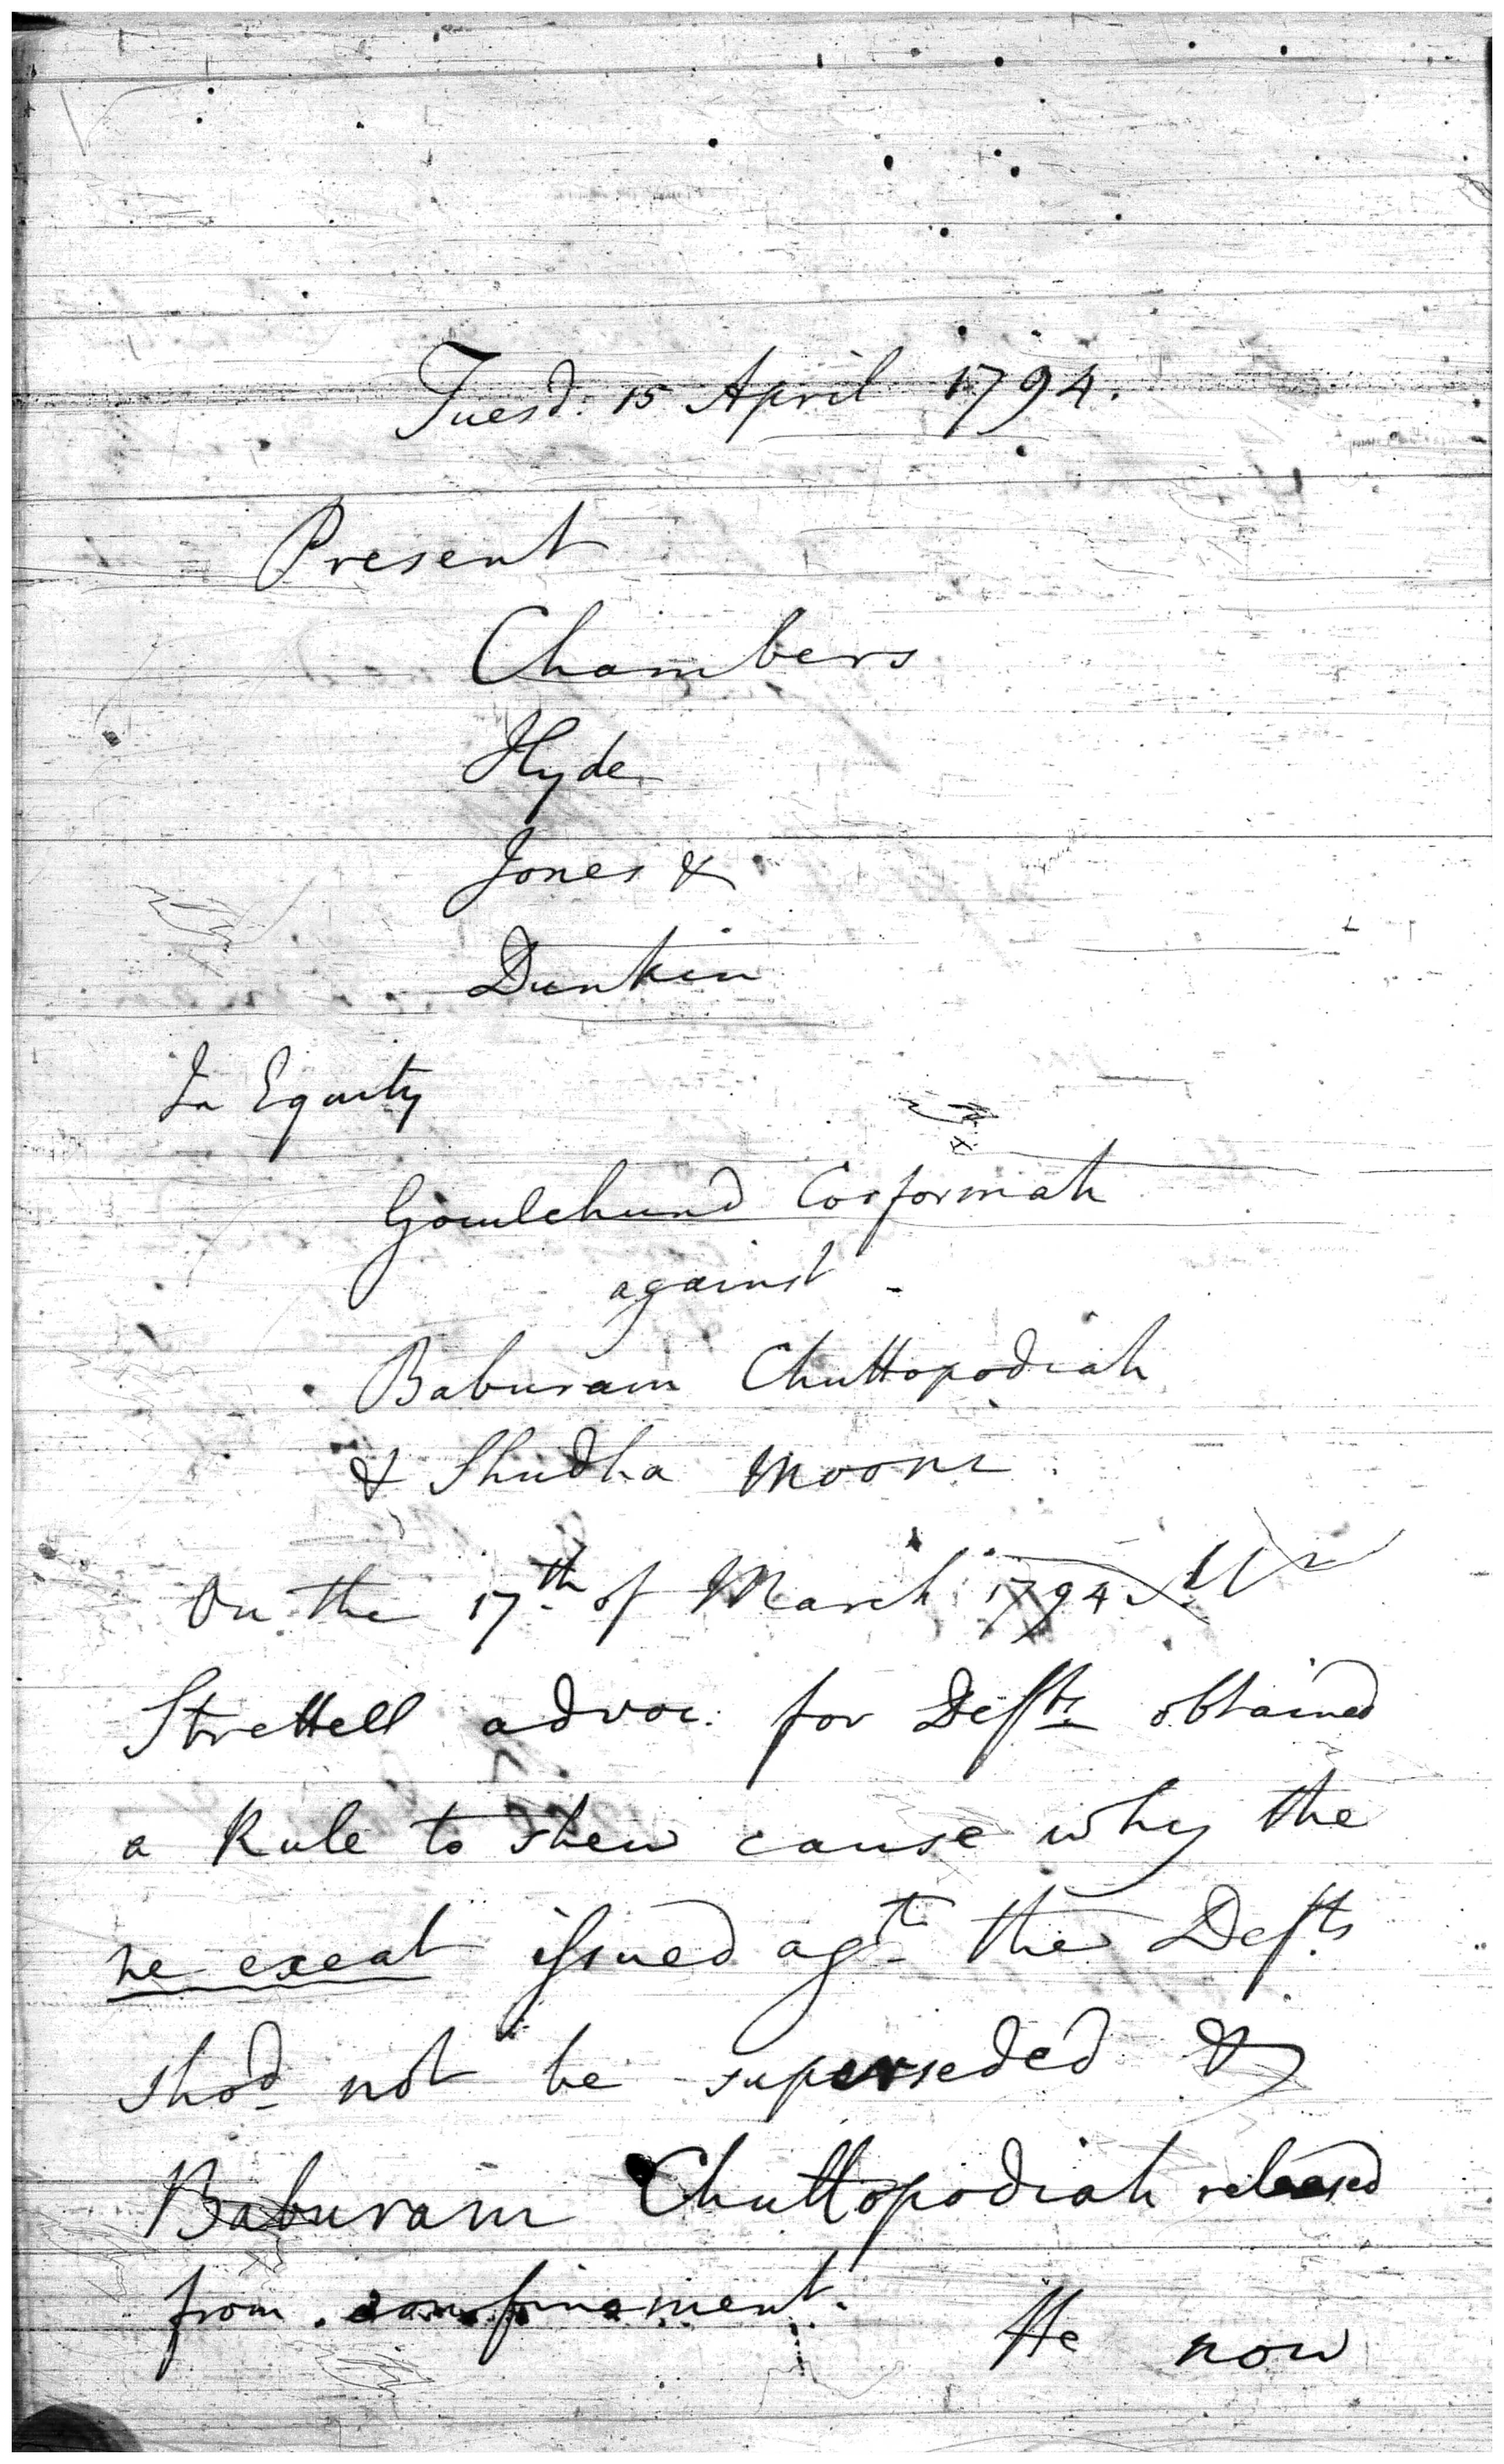 Tuesd: 15 April 1794.
Present
Chambers
Hyde
Jones &
Dunkin
In Equity
Goculchund Corformah
against
Baburam Chuttopodiah
& Shudha Moone
On the 17th of March 1794 Mr
Strettell advoc: for Defts obtained
a Rule to shew cause why the
ne exeat issued agt the Defts
shod not be superseded &
Baburam Chuttopodiah released
from confinement. He now